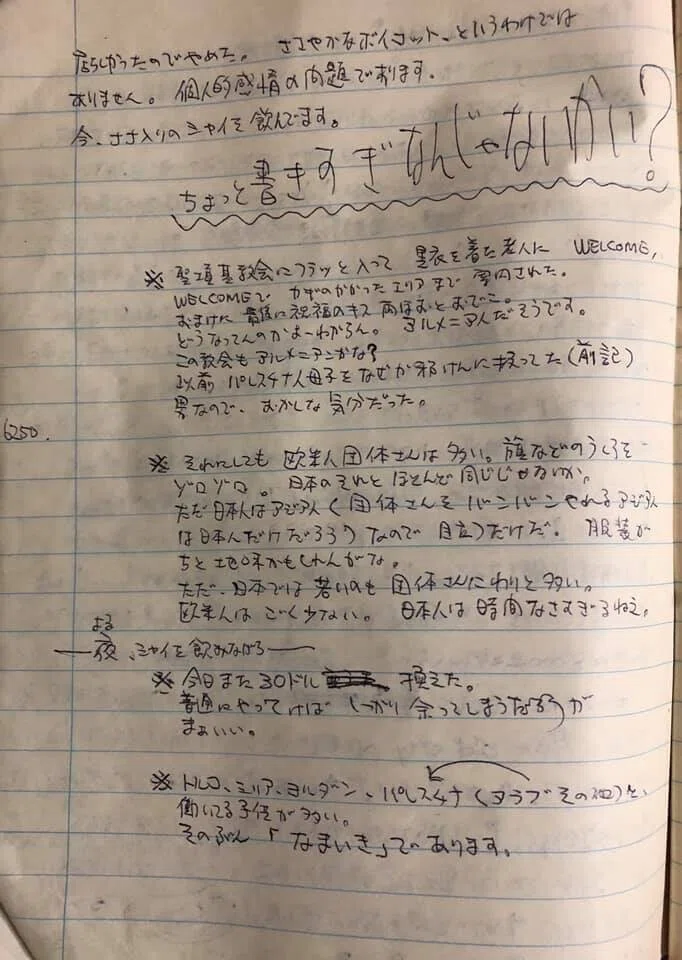 店らしかったのでやめた。ささやかなボイコット、というわけでは
ありません。個人的感情の問題であります。
今、ささ入りのシャイを飲んでます。
ちょっと書きすぎなんじゃないかい?
※ 聖墳墓教会にフラッと入って 黒衣を着た老人に WELCOME,
WELCOMEで カギのかかったエリアまで案内された。
おまけに最後に祝福のキス 両ほおとおでこ。
どうなってんのかよーわからん。アルメニア人だそうです。
この教会もアルメニアンかな?
以前 パレスチナ人母子をなぜか邪けんに扱ってた(前記)
男なので、おかしな気分だった。
6250.
※ それにしても 欧米人団体さんは多い。旗などのうしろを
ゾロゾロ。日本のそれとほとんど同じじゃないか。
ただ日本人はアジア人(団体さんをバンバンやれるアジア人
は日本人だけだろう)なので 目立つだけだ。服装が
ちと地味かもしれんがな。
ただ、日本では若いのも団体さんにわりと多い。
欧米人はごく少ない。日本人は時間なさすぎるねえ。
よる
―夜、シャイを飲みながら―
※ 今日また30ドル 換えた。
普通にやってけば しっかり余ってしまうなあ が
まぁいい。
※ トルコ、シリア、ヨルダン、パレスチナ(アラブその他)と、
働いてる子供が多い。
そのぶん「なまいき」であります。